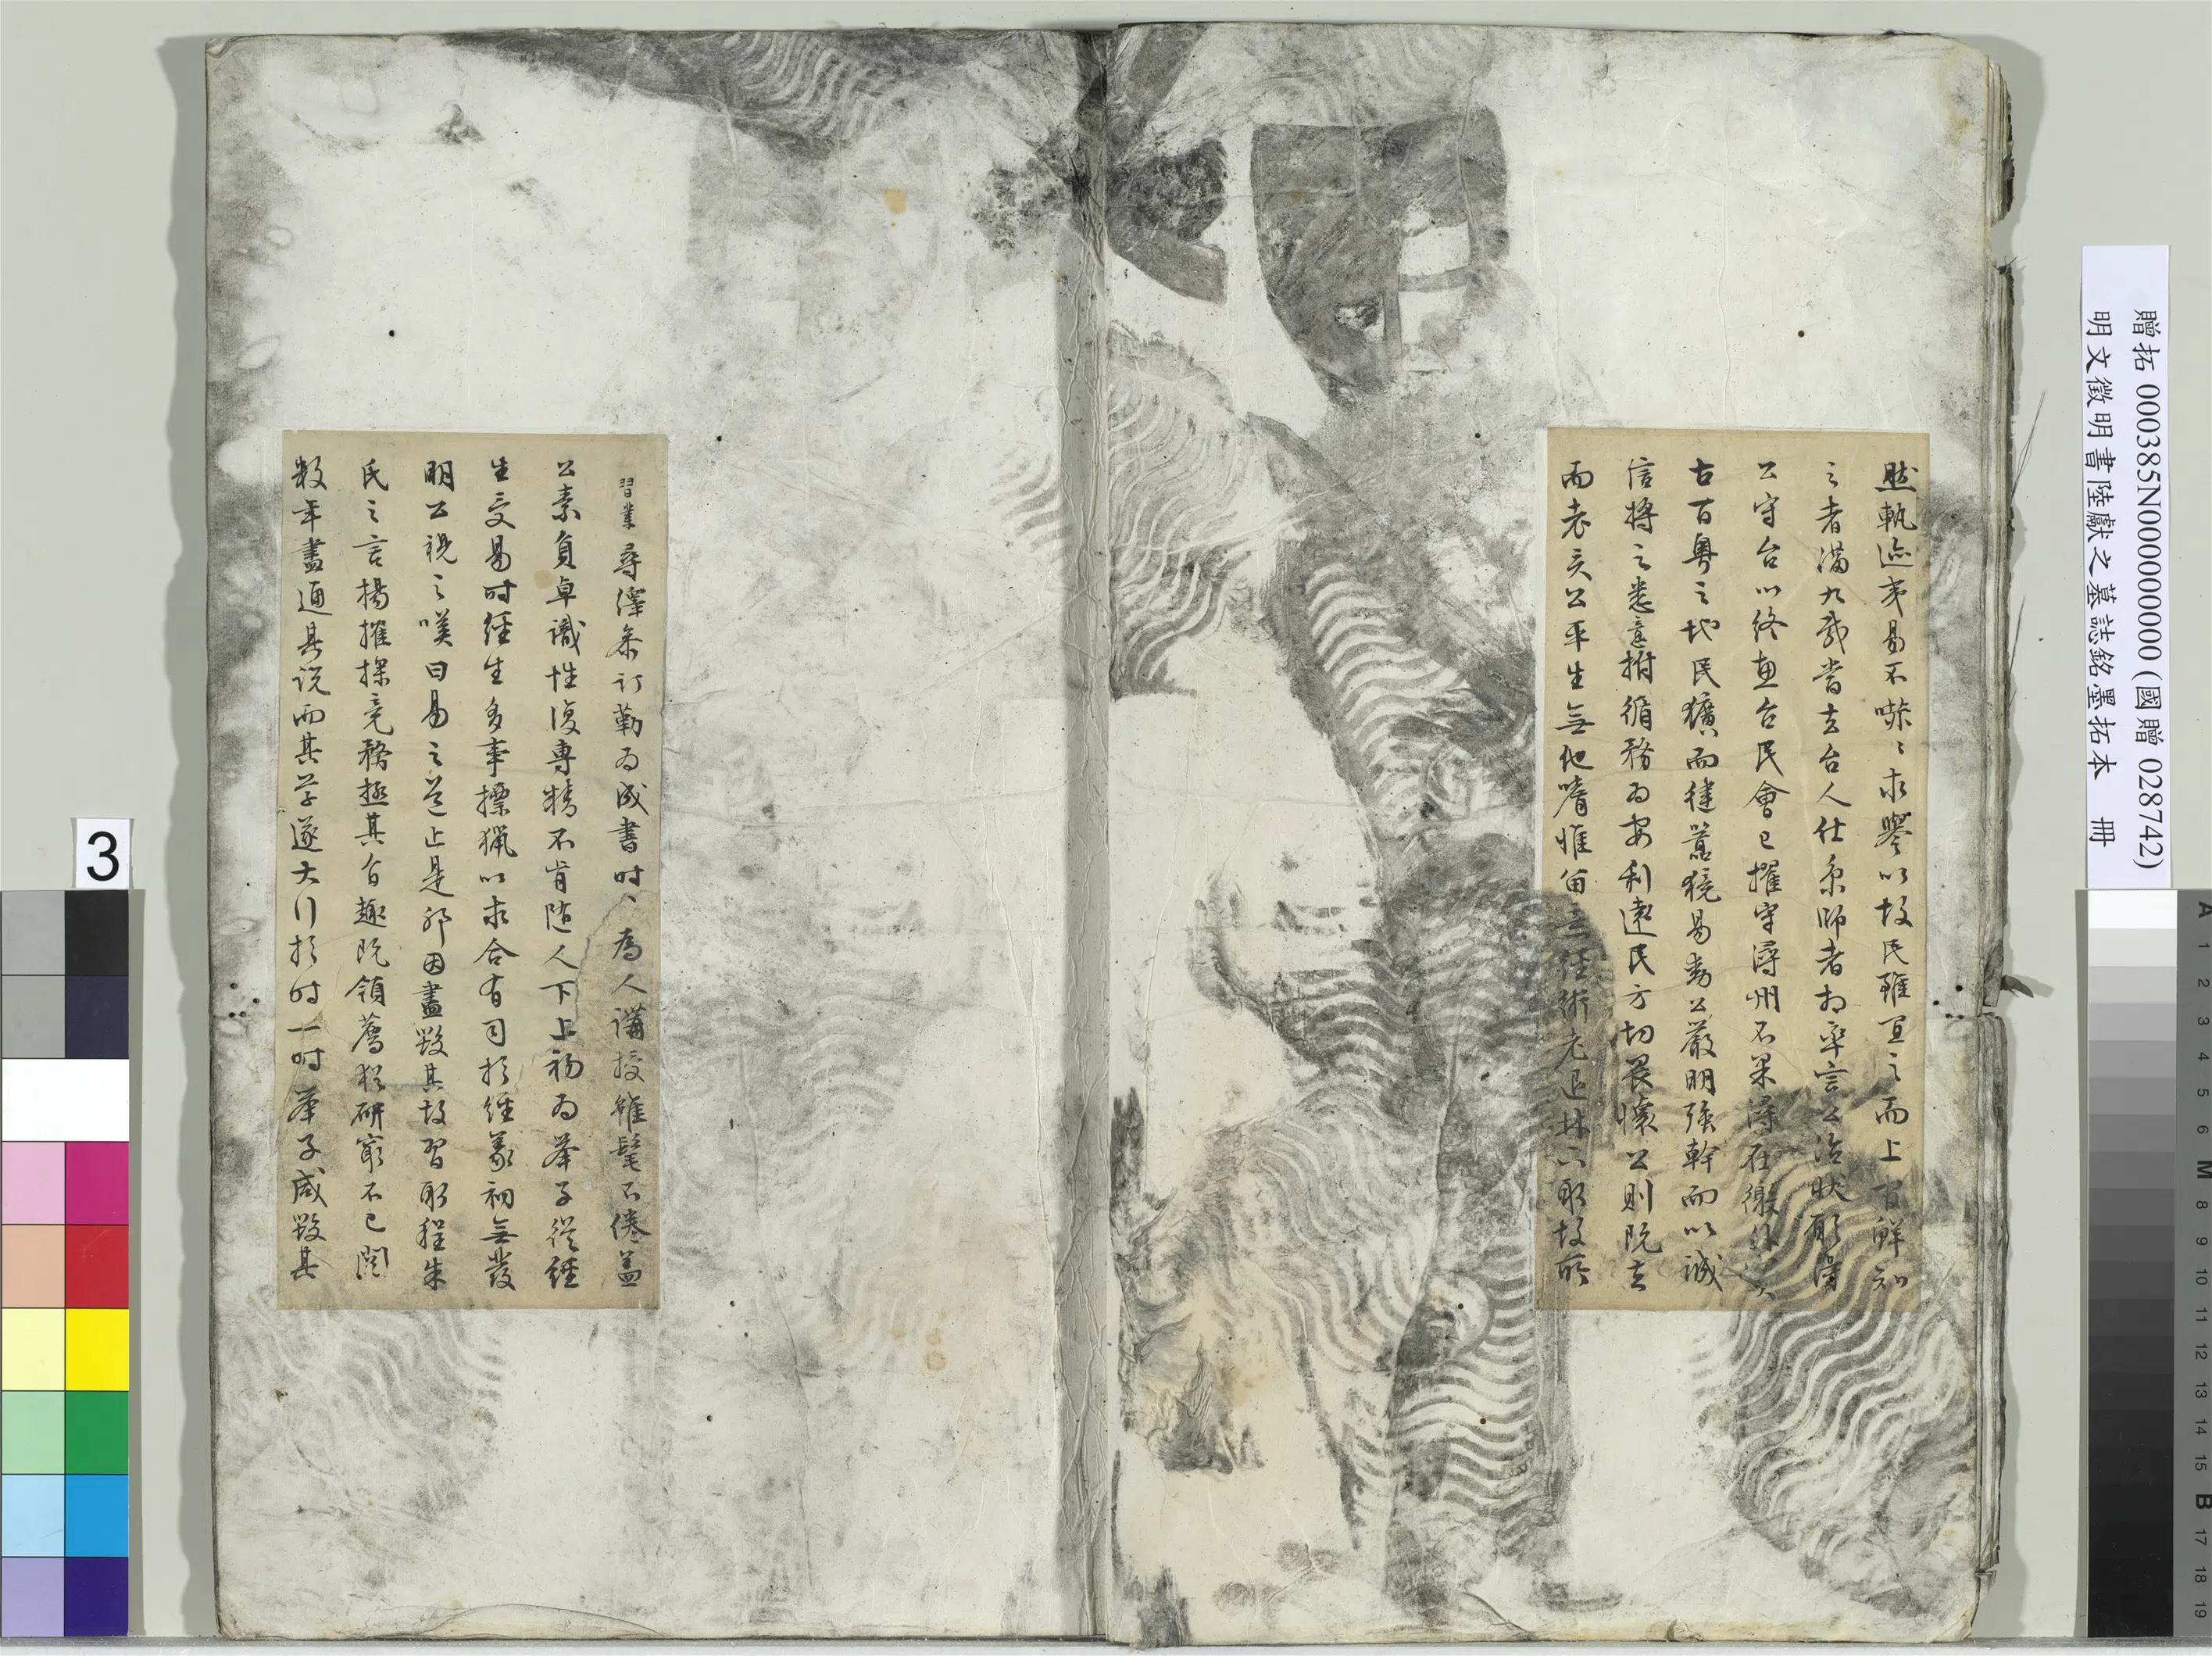 然軌迹夷易不㗭〻求譽以故民雖宜之而上官鮮知
之者滿九載當去台人仕京師者相率言公治狀願得
公守台以終惠台民會已擢守潯州不果潯在徼外
古百粵之地民獷而猺獠易動公嚴明強幹而以誠
信將之悉意拊循務為安利遠民方切畏懷公則既去
而老矣公平生無他嗜惟留意經術老退林下取故所
習業尋澤參訂勒為成書時〻為人講授雖髦不倦蓋
公素負卓識性復專精不肯隨人下上初為舉子從經
生受易時經生多事摽獵以求合有司於經義初無發
明公視之嘆曰易之道止是邪因盡毀其故習取程朱
氏之言揚搉探竟務極其旨趣既領薦猶研窮不已閱
數年盡通其說而其學遂大行於時一時舉子咸毀其
贈拓 000385N000000000 (國贈 028742)
明文徵明書陸獻之墓誌銘墨拓本 冊
3
A 1 2 3 4 5 6 M 8 9 10 11 12 13 14 15 B 17 18 19